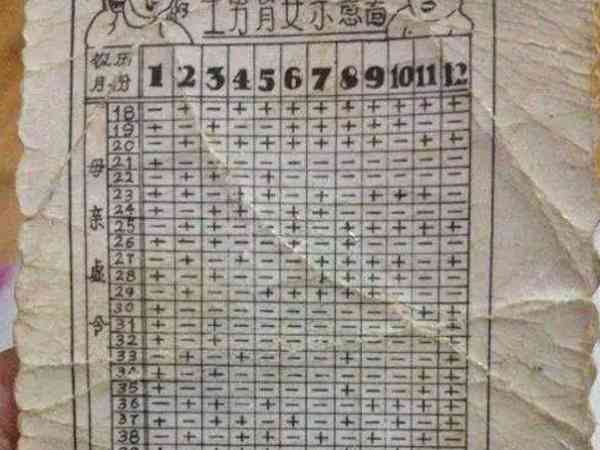 育女示意
农历月份 1 2 3 4 5 6 7 8 9 10 11 12
母亲虚令
18 − + − + + + + + + + + +
19 + − + − − + + − − + − −
20 − + − + + + + + + − + +
21 + − − − − − − − − − − −
22 − + + − + − − + − − − −
23 + + − + + − + − + + + −
24 + − + + − + + − − − − −
25 − + + − − + − + + + + +
26 + − + − − + − + − − − −
27 − + − + − − + + + + − +
28 + − + − − − + + − − − −
29 − + − − + + + + + − − −
30 + − − − − − − − − − + +
31 + − + − − − − − − − − +
32 + − + − − − − − − − − +
33 − + − + − − − + − − − +
34 + − + − − − − − − − + +
35 + − + − − − − + − − + +
36 − + + − + − − − + + + +
37 + − + + − + − + − + − +
38 − + − + + − + − − + − +